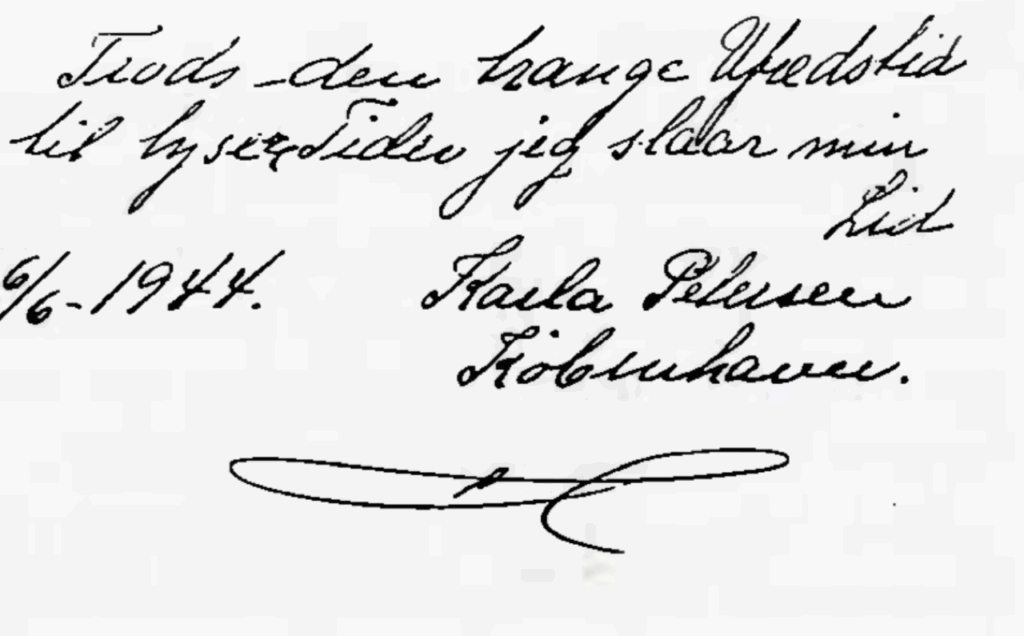 Trods den trange Ufredstid
til lysere Tider jeg slaar min
Lid
6/6-1944. Karla Petersen
København.